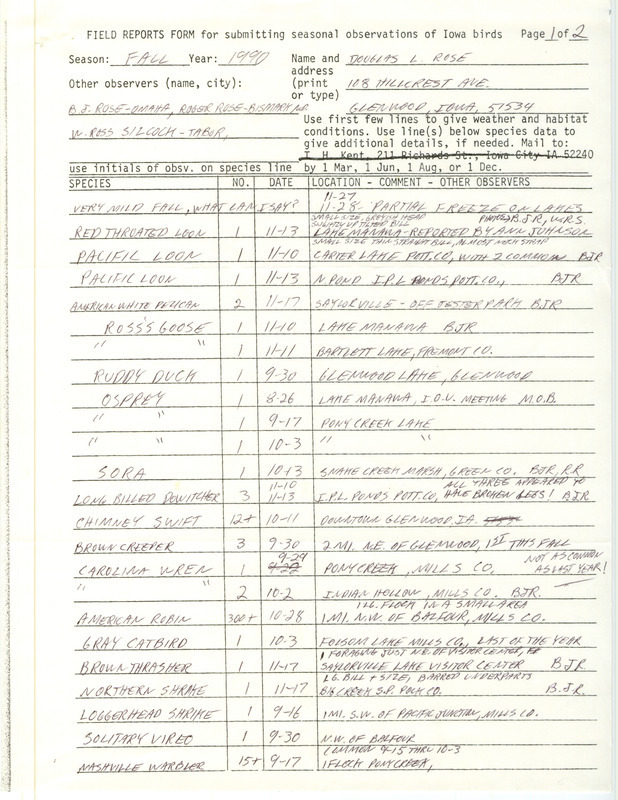 FIELD REPORTS FORM for submitting seasonal observations of Iowa birds Page 1 of 2
Season: FALL Year: 1990 Name and address (print or type) DOUGLAS L. ROSE
108 HILLCREST AVE.
GLENWOOD, IOWA, 51534
Other observers (name, city):
B.J. ROSE-OMAHA, ROGER ROSE-BISMARK N.D.
W. ROSS SILCOCK-TABOR,
Use first few lines to give weather and habitat
conditions. Use line(s) below species data to
give additional details, if needed. Mail to:
T. H. Kent, 211 Richards St., Iowa City IA 52240
use initials of obsv. on species line by 1 Mar, 1 Jun, 1 Aug, or 1 Dec.
SPECIES NO. DATE LOCATION - COMMENT - OTHER OBSERVERS
11-27
VERY MILD FALL, WHAT CAN I SAY? 11-28 PARTIAL FREEZE ON LAKES
SMALL SIZE, GREYISH HEAD
SLIGHTLY UPTILTED BILL PHOTOS B.J.R, W.R.S.
RED THROATED LOON 1 11-13 LAKE MANAWA-REPORTED BY ANN JOHNSON
SMALL SIZE THIN STRAIGHT BILL, ALMOST NECK STRAP
PACIFIC LOON 1 11-10 CARTER LAKE POTT.CO, WITH 2 COMMON BJR
PACIFIC LOON 1 11-13 N POND I.P.L PONDS POTT.CO., BJR
AMERICAN WHITE PELICAN 2 11-17 SAYLORVILLE - OFF JESTER PARK BJR
ROSS'S GOOSE 1 11-10 LAKE MANAWA BJR
" " 1 11-11 BARTLETT LAKE, FREMONT CO.
RUDDY DUCK 1 9-30 GLENWOOD LAKE, GLENWOOD
OSPREY 1 8-26 LAKE MANAWA, I.O.U. MEETING M.O.B.
" " 1 9-17 PONY CREEK LAKE
" " 1 10-3 " "
SORA 1 10-13 SNAKE CREEK MARSH, GREEN CO. BJR, RR
11-10 ALL THREE APPEARED TO
LONG BILLED DOWITCHER 3 11-13 I.P.L PONDS POTT.CO, HAVE BROKEN LEGS! BJR
CHIMNEY SWIFT 12+ 10-11 DOWNTOWN GLENWOOD, IA.
BROWN CREEPER 3 9-30 2 MI. N.E. OF GLENWOOD, 1ST THIS FALL
9-29 NOT AS COMMON
CAROLINA WREN 1 9-22 PONY CREEK, MILLS CO, AS LAST YEAR!
" " 2 10-2 INDIAN HOLLOW, MILLS CO. BJR.
1 LG. FLOCK IN A SMALL AREA
AMERICAN ROBIN 300+ 10-28 1 MI. N.W. OF BALFOUR, MILLS CO.
GRAY CATBIRD 1 10-3 FOLSOM LAKE MILLS CO., LAST OF THE YEAR
FORAGING JUST N.E. OF VISITOR CENTER,
BROWN THRASHER 1 11-17 SAYLORVILLE LAKE VISITOR CENTER BJR
LG. BILL + SIZE, BARRED UNDERPARTS
NORTHERN SHRIKE 1 11-17 BIG CREEK S.P. POLK CO. B.J.R.
LOGGERHEAD SHRIKE 1 9-16 1 MI. S.W. OF PACIFIC JUNCTION, MILLS CO.
SOLITARY VIREO 1 9-30 N.W. OF BALFOUR
COMMON 9-15 THRU 10-3
NASHVILLE WARBLER 15+ 9-17 1 FLOCK PONY CREEK,